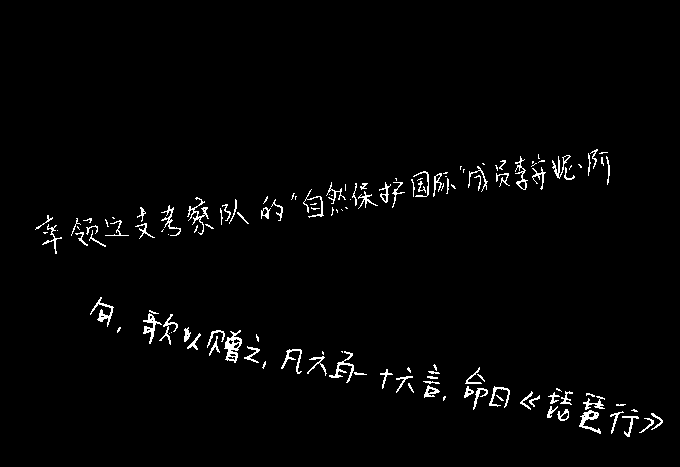 率领这支考察队的“自然保护国际”成员李安妮·阿
句,歌以赠之,凡六百一十六言,命曰《琵琶行》